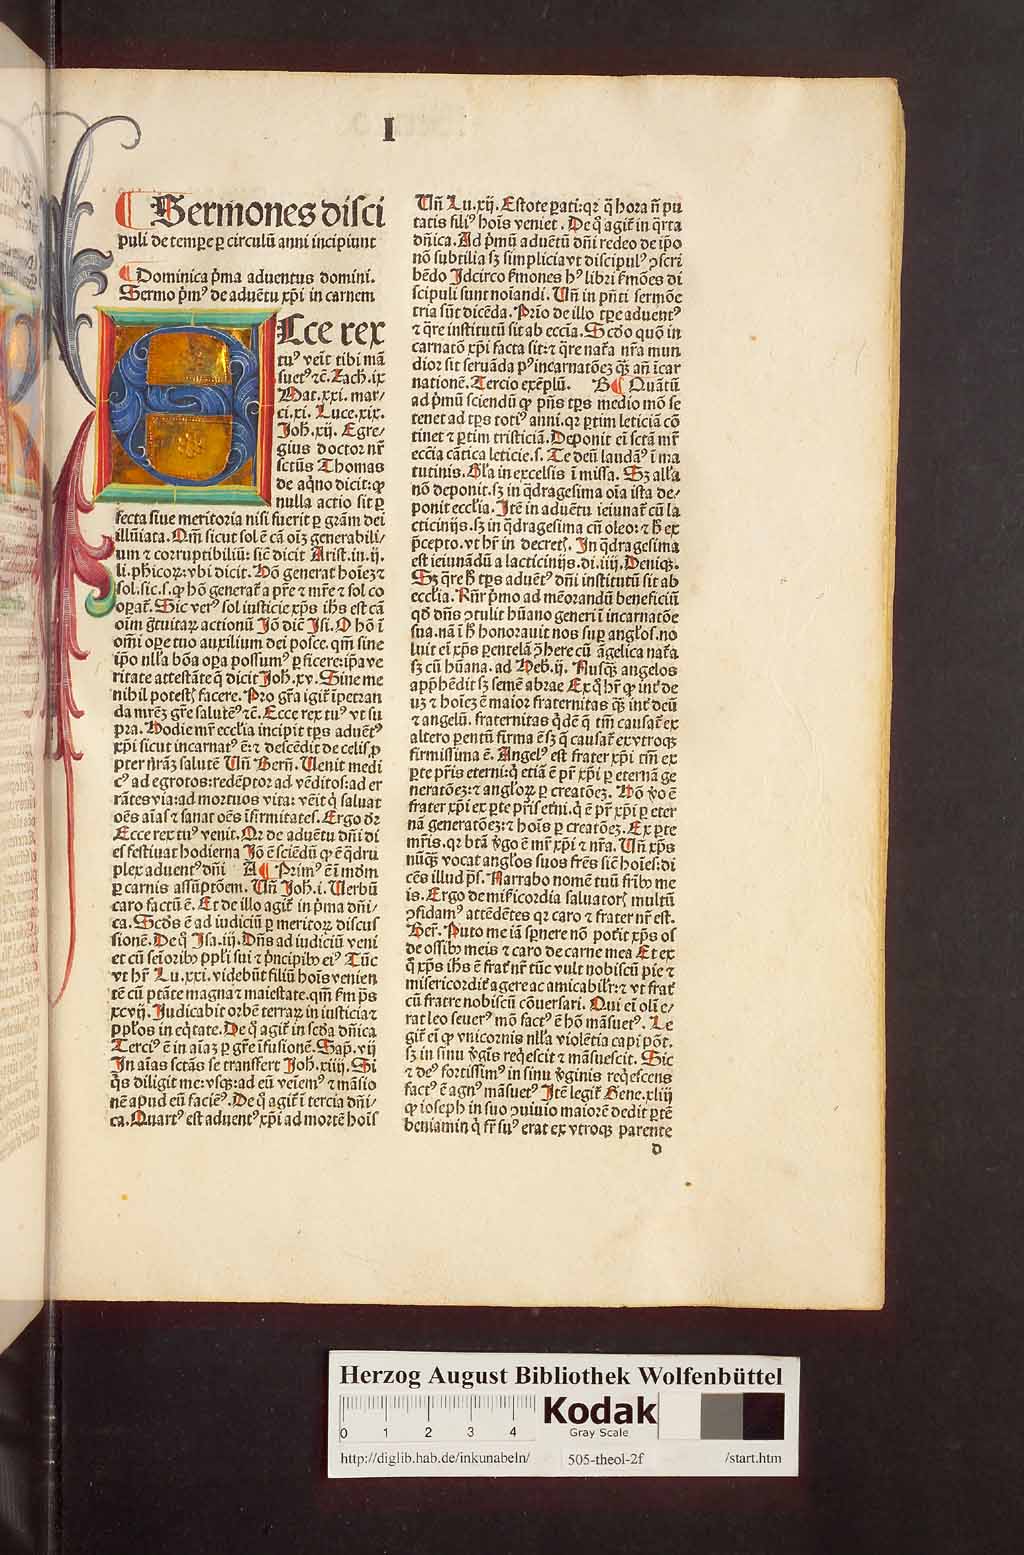 I
Sermones disci
puli de tempe ꝑ circulū anni incipiunt
Dominica pͥma aduentus domini.
Sermo pͥmꝰ de aduētu xp̄i in carnem
Ecce rex
tuꝰ veīt tibi mā
suetꝰ ⁊c̄. Zach. ix
Mat. xxi. mar/
ci. xi. Luce. xix.
Joh̄. xij. Egre/
gius doctor nr̄
sctūs Thomas
de aqͥno dicit: ꝙ
nulla actio sit ꝑ
fecta siue meritoria nisi fuerit ꝑ grām dei
illūīata. Qm̄ sicut sol ē cā oīꝫ generabili/
um ⁊ corruptibiliū: sic̄ dicit Arist. in. ij.
li. ph̄icoꝝ: vbi dicit. Hō generat hoīeꝫ ⁊
sol. sic. s. ꝙ hō generat̄ a pr̄e ⁊ mr̄e ⁊ sol co
oꝑat̄. Sic verꝰ sol iusticie xp̄s ih̄s est cā
oīm ḡtuitaꝝ actionū Jō dic̄ Jsi. O hō ī
om̄i oꝑe tuo auxilium dei posce. qm̄ sine
ip̄o nll̄a bōa oꝑa possumꝰ ꝑficere: ip̄a ve
ritate attestāte q̄ dicit Joh̄. xv. Sine me
nihil potestꝭ facere. Pro gr̄a igit̄ īpetran
da mr̄eꝫ gr̄e salutēꝰ ⁊c̄. Ecce rex tuꝰ vt su
pra. Hodie mr̄ ecclīa incipit tp̄s aduētꝰ
xp̄i sicut incarnatꝰ ē: ⁊ descēdit de celis, ꝓ
pter nr̄aꝫ salutē Vn̄ Bern̄. Uenit medi
cꝰ ad egrotos: redēptor ad vēditos: ad er
rātes via: ad mortuos vita: vēit qͥ saluat
oēs aīas ⁊ sanat oēs īfirmitates. Ergo dr̄
Ecce rex tuꝰ venit. Qr de aduētu dn̄i di
es festiuat̄ hodierna Jō ē sciēdū ꝙ ē q̄dru
plex aduentꝰ dn̄i A Primꝰ ē ī mōm
ꝑ carnis assūptōem. Vn̄ Joh̄. i. Uerbū
caro factū ē. Et de illo agit̄ in pͥma dn̄i/
ca. Scd̄s ē ad iudiciū ꝑ meritoꝝ discus
sionē. De q̄ Jsa. iij. Dn̄s ad iudiciū veni
et cū seīorib̄ ꝓpl̄i sui ⁊ pͥncipib̄ eiꝰ Tūc
vt hr̄ Lu. xxi. videbūt filiū hoīs venien
tē cū ptāte magna ⁊ maiestate. qm̄ fm̄ ps̄
xcvij. Judicabit orbē terraꝝ in iusticia ⁊
ꝓpl̄os in eq̄tate. De q̄ agit̄ in scd̄a dn̄ica
Terciꝰ ē in aīaꝫ ꝑ gr̄e īfusionē. Sap̄. vij
In aīas sctās se transffert Joh̄. xiiij. Si
qͥs diligit me: vsqꝫ: ad eū veīemꝰ ⁊ māsio
nē apud eū faciēꝰ. De q̄ agit̄ ī tercia dn̄i/
ca. Quartꝰ est aduentꝰ xp̄i ad mortē hoīs
Vn̄ Lu. xij. Estote ꝑati: qr q̄ hora n̄ pu
tatis filiꝰ hoīs veniet. De q̄ agit̄ in q̄rta
dn̄ica. Ad pͥmū aduētū dn̄i redeo de ip̄o
nō subtilia sꝫ simplicia vt discipulꝰ ꝯscri
bēdo Jdcirco ẜmones hꝰ libri ẜmōes di
scipuli sunt noīandi. Vn̄ in pn̄ti sermōe
tria sūt dicēda. Prīo de illo tp̄e aduentꝰ
⁊ q̄re institutū sit ab eccīa. Scd̄o quō in
carnatō xp̄i facta sit: ⁊ q̄re nat̄a nr̄a mun
dior sit seruāda pꝰ incarnatōeꝫ qꝫ an̄ īcar
nationē. Tercio exēplū. B Quātū
ad pͥmū sciendū ꝙ pn̄s tp̄s medio mō se
tenet ad tp̄s totiꝰ anni. qr ꝑtim leticiā cō
tinet ⁊ ꝑtim tristiciā. Deponit eī sctā mr̄
eccīa cātica leticie. s. Te deū laudāꝰ ī ma
tutinis. Gl̄a in excelsis ī missa. Sꝫ all̄a
nō deponit. sꝫ in q̄dragesima oīa ista de/
ponit eccl̄ia. Jtē in aduētu ieiunat̄ cū la
cticinijs. sꝫ in q̄dragesima cū oleo: ⁊ h̄ ex
p̄cepto. vt hr̄ in decretꝭ. In q̄dragesima
est ieiunādū a lacticinijs. di. iiij. Deniqꝫ.
Sꝫ q̄re h̄ tp̄s aduētꝰ dn̄i institutū sit ab
eccl̄ia. Rn̄r pͥmo ad mēorandū beneficiū
qd̄ dn̄s ꝯtulit hūano generi ī incarnatōe
sua. nā ī h̄ honorauit nos suꝑ angl̄os. no
luit eī xp̄s ꝑentelā ꝯ̄here cū āgelica nat̄a
sꝫ cū hūana. ad Heb̄. ij. Nusqꝫ angelos
app̄hēdit sꝫ semē abrae Ex q̄ hr̄ ꝙ int̄ de
uꝫ ⁊ hoīeꝫ ē maior fraternitas qꝫ int̄ deū
⁊ angelū. fraternitas q̄dē q̄ tm̄ causat̄ ex
altero ꝑentū firma ē sꝫ q̄ causat̄ ex vtroqꝫ
firmissima ē. Angelꝰ est frater xp̄i tm̄ ex
ꝑte pr̄is eterni: qͥ etiā ē pr̄ xp̄i ꝑ eternā ge
neratōeꝫ: ⁊ angl̄oꝝ ꝑ creatōeꝫ. Hō v̊o ē
frater xp̄i ex ꝑte pr̄is et̄ni. qͥ ē pr̄ xp̄i ꝑ eter
nā generatōeꝫ: ⁊ hoīs ꝑ creatōeꝫ. Ex ꝑte
mr̄is. qr btā v̊go ē mr̄ xp̄i ⁊ nr̄a. Vn̄ xp̄s
nūqꝫ vocat angl̄os suos fr̄es sic̄ hoīes: di
cēs illud ps̄. Narrabo nomē tuū frib̄ me
is. Ergo de miẜicordia saluatorꝭ multū
ꝯfidamꝰ attēdētes qr caro ⁊ frater nr̄ est.
Ber̄. Puto me iā sp̄nere nō potīt xp̄s os
de ossib̄ meis ⁊ caro de carne mea Et ex
q̄ xp̄s ih̄s ē frat̄ nr̄ tūc vult nobiscū pie ⁊
misericordit̄ agere ac amicabilr̄: ⁊ vt frat̄
cū fratre nobiscū cōuersari. Qui eī olī e/
rat leo seuerꝰ mō factꝰ ē hō māsuetꝰ. Le
git̄ eī ꝙ vnicornis nll̄a violētia capi pōt.
sꝫ in sinu v̊gīs req̄escit ⁊ māsuescit. Sic
⁊ deꝰ fortissimꝰ in sinu v̊ginis req̄escens
factꝰ ē agnꝰ māsuetꝰ Jtē legit̄ Gene. xliij
ꝙ ioseph in suo ꝯuiuio maiorē dedit ꝑtē
beniamin qͥ fr̄ suꝰ erat ex vtroqꝫ parente
d
Herzog August Bibliothek Wolfenbüttel
0 1 2 3 4
Kodak
Gray Scale
http://diglib.hab.de/inkunabeln/ 505-theol-2f /start.htm